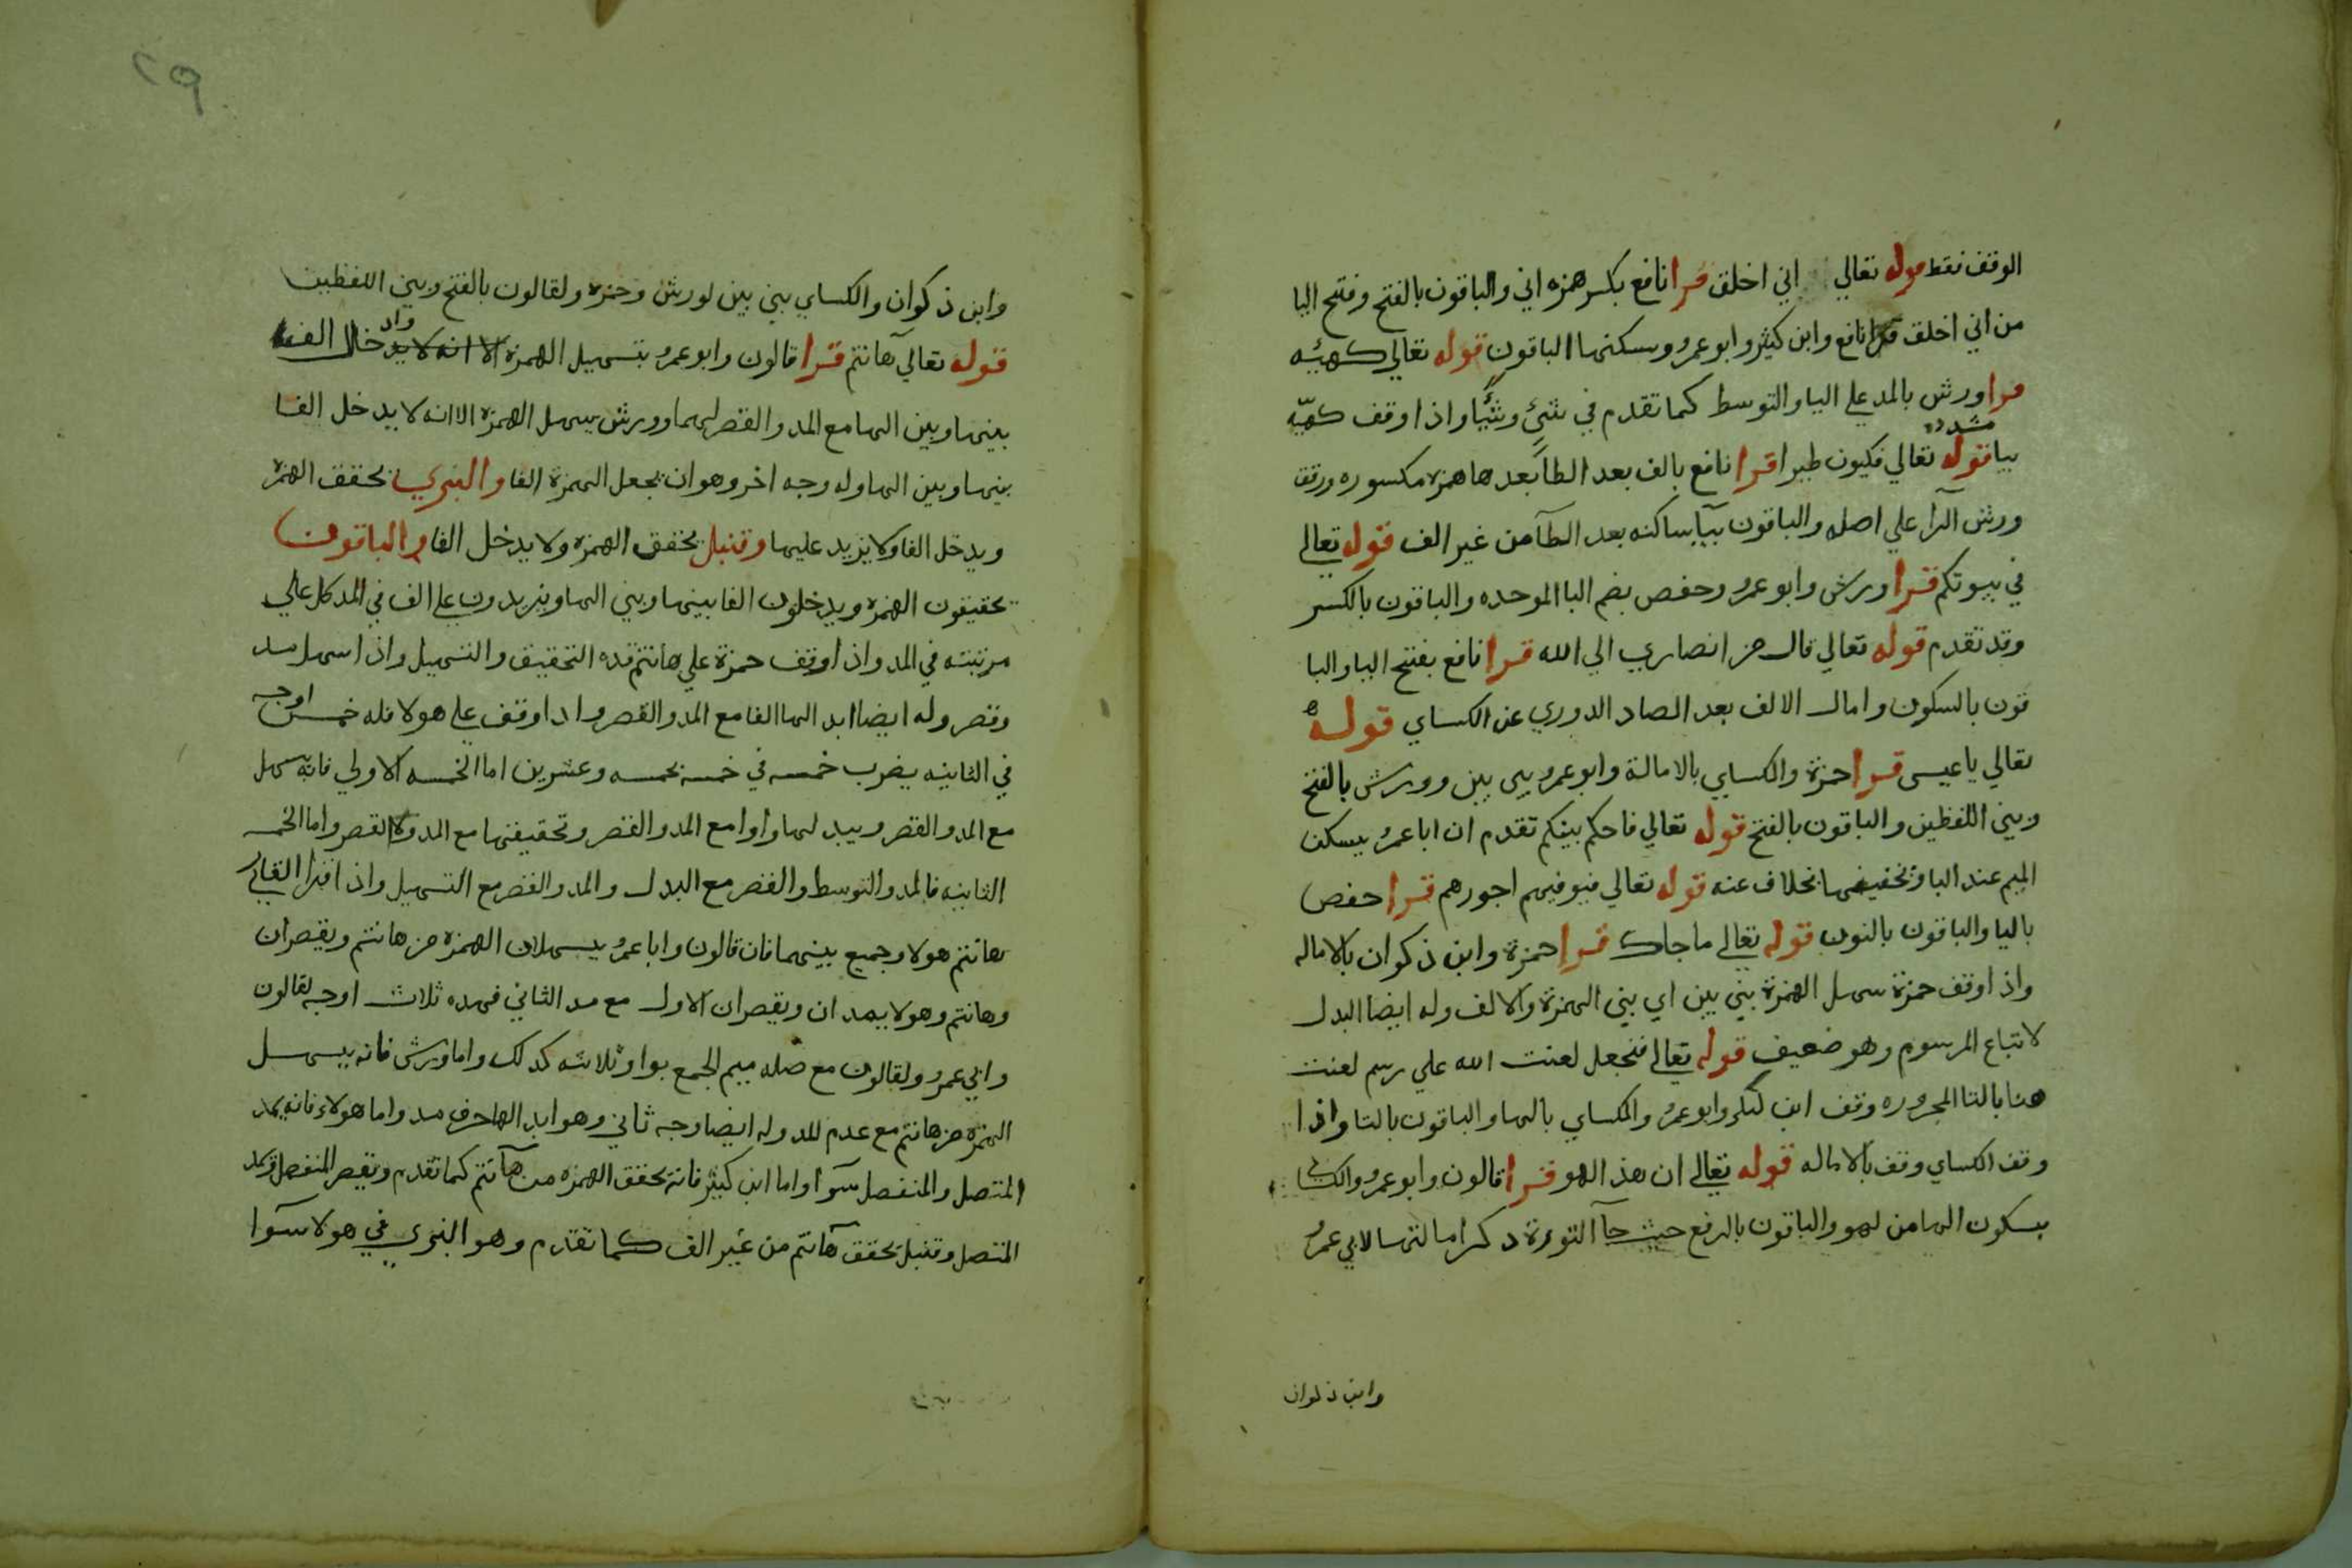 الوقف فقط قوله تعالي اني اخلق قرا نافع بكسر همزه اني والباقون بالفتح وفتح اليا
من اني اخلق قرا نافع وابن كثير وابو عمرو وسكنها الباقون قوله تعالي كهيئه
قرا ورش بالمد علي اليا والتوسط كما تقدم في شئ وشيًا واذا وقف كهيّه
مشدده
بيا قوله تعالي فيكون طيرا قرا نافع بالف بعد الطا بعدها همزه مكسوره ورقق
ورش الرآ علي اصله والباقون بيآ ساكنه بعد الطآ من غير الف قوله تعالي
في بيوتكم قرا ورش وابو عمرو وحفص بضم البا الموحده والباقون بالكسر
وقد تقدم قوله تعالي قال من انصاري الي الله قرا نافع بفتح اليا والبا
قون بالسكون وامال الالف بعد الصاد الدوري عن الكساي قوله
تعالي يا عيسي قرا حمزة والكساي بالامالة وابو عمرو بين بين وورش بالفتح
وبين اللفظين والباقون بالفتح قوله تعالي فاحكم بينكم تقدم ان ابا عمرو يسكن
الميم عند البا وتخفيفها بخلاف عنه قوله تعالي فيوفيهم اجورهم قرا حفص
باليا والباقون بالنون قوله تعالي ما جاك قرا حمزة وابن ذكوان بالاماله
واذا وقف حمزة سهل الهمزة بين بين اي بين الهمزة والالف وله ايضا البدل
لاتباع المرسوم وهو ضعيف قوله تعالي فنجعل لعنت الله علي رسم لعنت
هنا بالتا المجروره وقف ابن كثير وابو عمرو والكساي بالها والباقون بالتا واذا
وقف الكساي وقف بالاماله قوله تعالي ان هذا لهو قرا قالون وابو عمرو والكساي
بسكون الها من لهو والباقون بالرفع حيث جآ التورة ذكر امالتها لابي عمرو
وابن ذكوان
٢٩
وابن ذكوان والكساي بين بين لورش وحمزه ولقالون بالفتح وبين اللفظين
قوله تعالي هآنتم قرا قالون وابو عمرو بتسهيل الهمزة الا انه لا يدخال الف
واد
بينها وبين الها مع المد والقصر لهما وورش يسهل الهمزة الا انه لا يدخل الفا
بينها وبين الها وله وجه اخر وهو ان يجعل الهمزة الفا والبزي يحقق الهمزه
ويدخل الفا ولا يزيد عليها وقنبل يحقق الهمزه ولا يدخل الفا والباقون
يحقيقون الهمزه ويدخلون الفا بينها وبين الها ويزيدون علي الف في المد كل علي
مرتبته في المد واذا وقف حمزة علي هانتم فله التحقيق والتسهيل واذا سهل مد
وقصر وله ايضا ابدالها الفا مع المد والقصر واذا وقف علي هولا فله خمس اوجه
في الثانيه يضرب خمسه في خمسه بخمسه وعشرين اما الخمسه الاولي فانه يسهل
مع المد والقصر ويبدلها واوا مع المد والقصر وتحقيقها مع المد لا القصر واما الخمسه
الثانيه فالمد والتوسط والقصر مع البدل والمد والقصر مع التسهيل واذا قرا القاري
هانتم هولا وجمع بينهما فان قالون وابا عمرو يسهلان الهمزه من هانتم ويقصران
وهانتم وهولا يمدان ويقصران الاول مع مد الثاني فهده ثلاث اوجه لقالون
وابي عمرو ولقالون مع صله ميم الجمع بواو ثلاثه كدلك واما ورش فانه يسهل
الهمزه من هانتم مع عدم المد وله ايضا وجه ثاني وهو ابدالها حرف مد واما هولاء فانه يمد
المتصل والمنفصل سوآ واما ابن كثير فانه يحقق الهمزه من هآنتم كما تقدم ويقصر المنفصل ويمد
المتصل وقنبل يحقق هآنتم من غير الف كما تقدم وهو البزي في هولا سوا